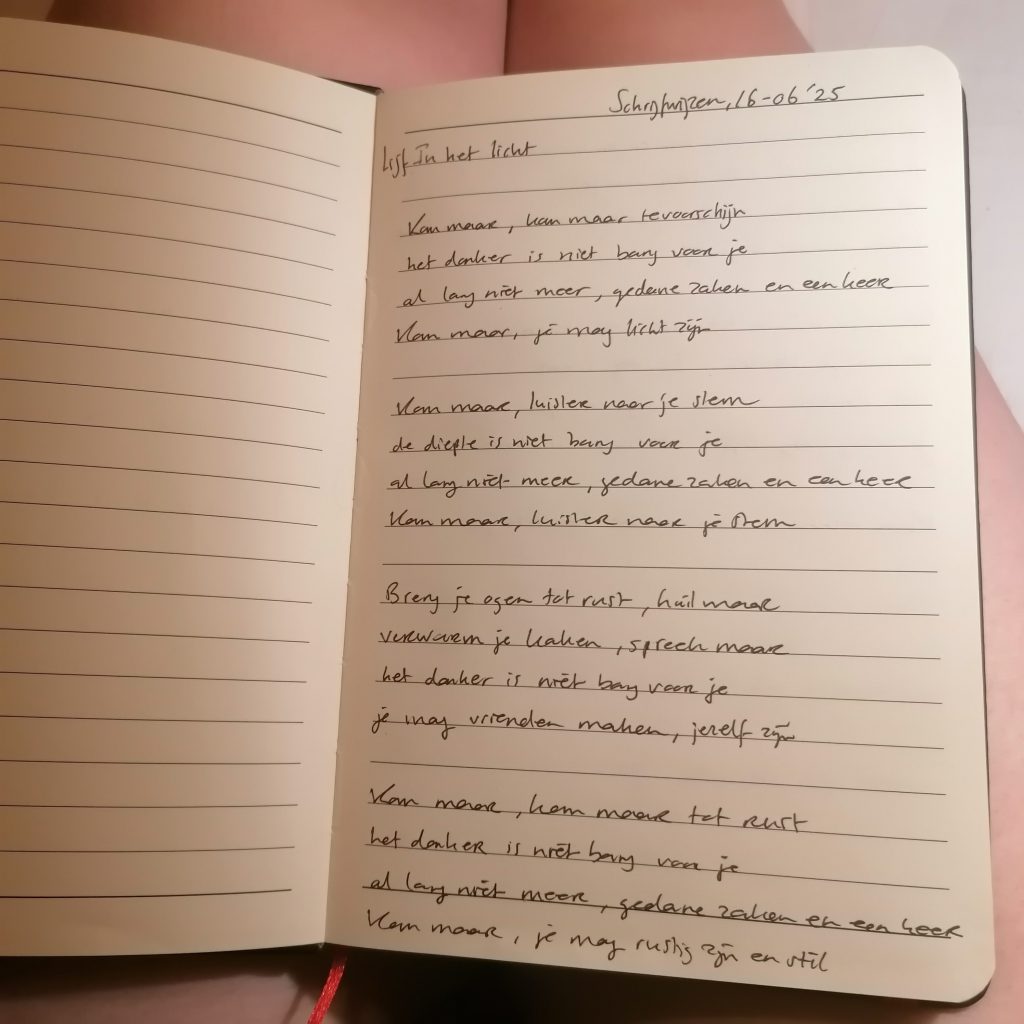 Schrijfwijzen, 16-06 '25
Lijf In het licht
Kom maar, kom maar tevoorschijn
het donker is niet bang voor je
al lang niet meer, gedane zaken en een keer
Kom maar, je mag licht zijn
Kom maar, luister naar je stem
de diepte is niet bang voor je
al lang niet meer, gedane zaken en een keer
Kom maar, luister naar je stem
Breng je ogen tot rust, huil maar
verwarm je kaken, spreek maar
het donker is niet bang voor je
je mag vrienden maken, jezelf zijn
Kom maar, kom maar tot rust
het donker is niet bang voor je
al lang niet meer, gedane zaken en een keer
Kom maar, je mag rustig zijn en stil